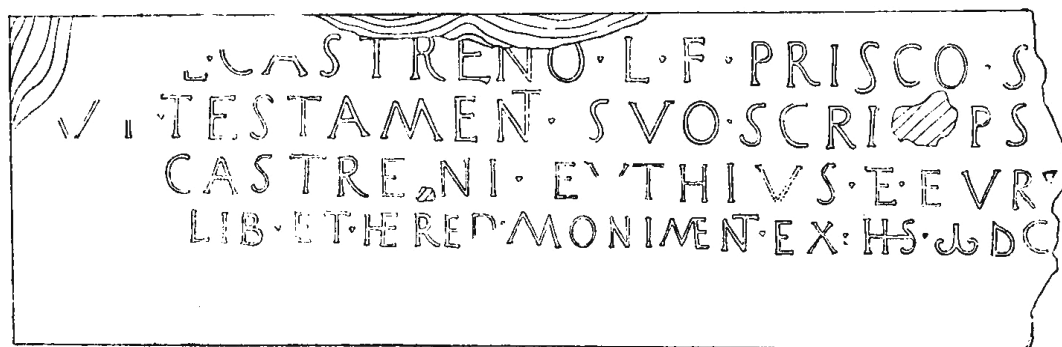 L·CASTRENO·L·F·PRISCO·S
VT·TESTAMENT·SVO·SCRI PS
CASTRENI·EVTHIVS·E·EVR
LIB·ET·HERED·MONIMENT·EX·HS·ↀDC